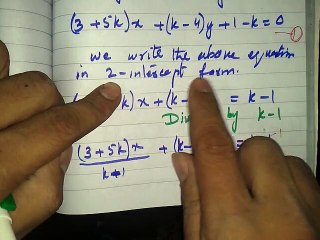 (3+5k)x + (k-4)y + 1 - k = 0 ①
we write the above equation
in 2-intercept form.
k)x + (k- = k-1
Div by k-1
(3+5k)x + (k- =
k-1